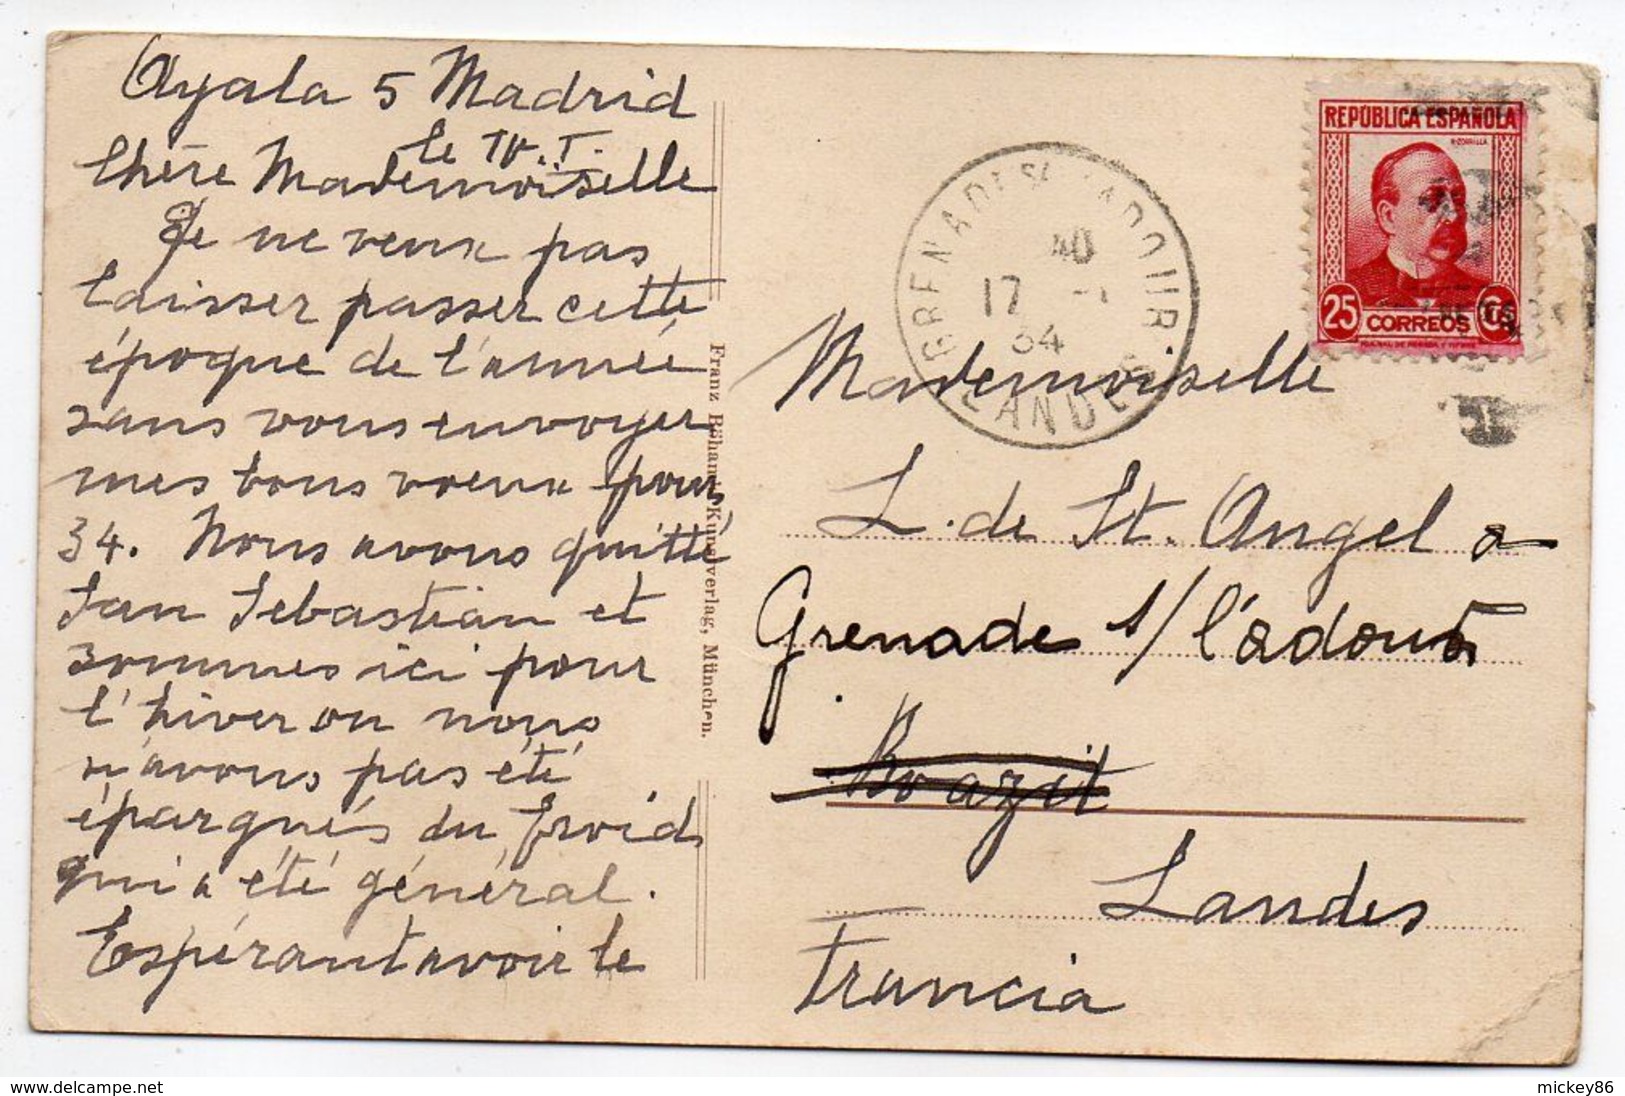 Ayala 5 Madrid
le
Chère Mademoiselle
Je ne veux pas
laisser passer cette
époque de l'année
sans vous envoyer
mes bons voeux pour
34. Nous avons quitté
San Sebastian et
sommes ici pour
l'hiver où nous
n'avons pas été
épargnés du froid
qui a été général.
Espérant avoir le
Franz Böham, Kunstverlag, München.
GRENADE S/ L'ADOUR
40
17 -1
34
LANDES
REPÚBLICA ESPAÑOLA
R. ZORRILLA
25 CORREOS Cs
Mademoiselle
L. de St. Angel a
Grenade s/ l'adour
Landes
Francia
www.delcampe.net
mickey86